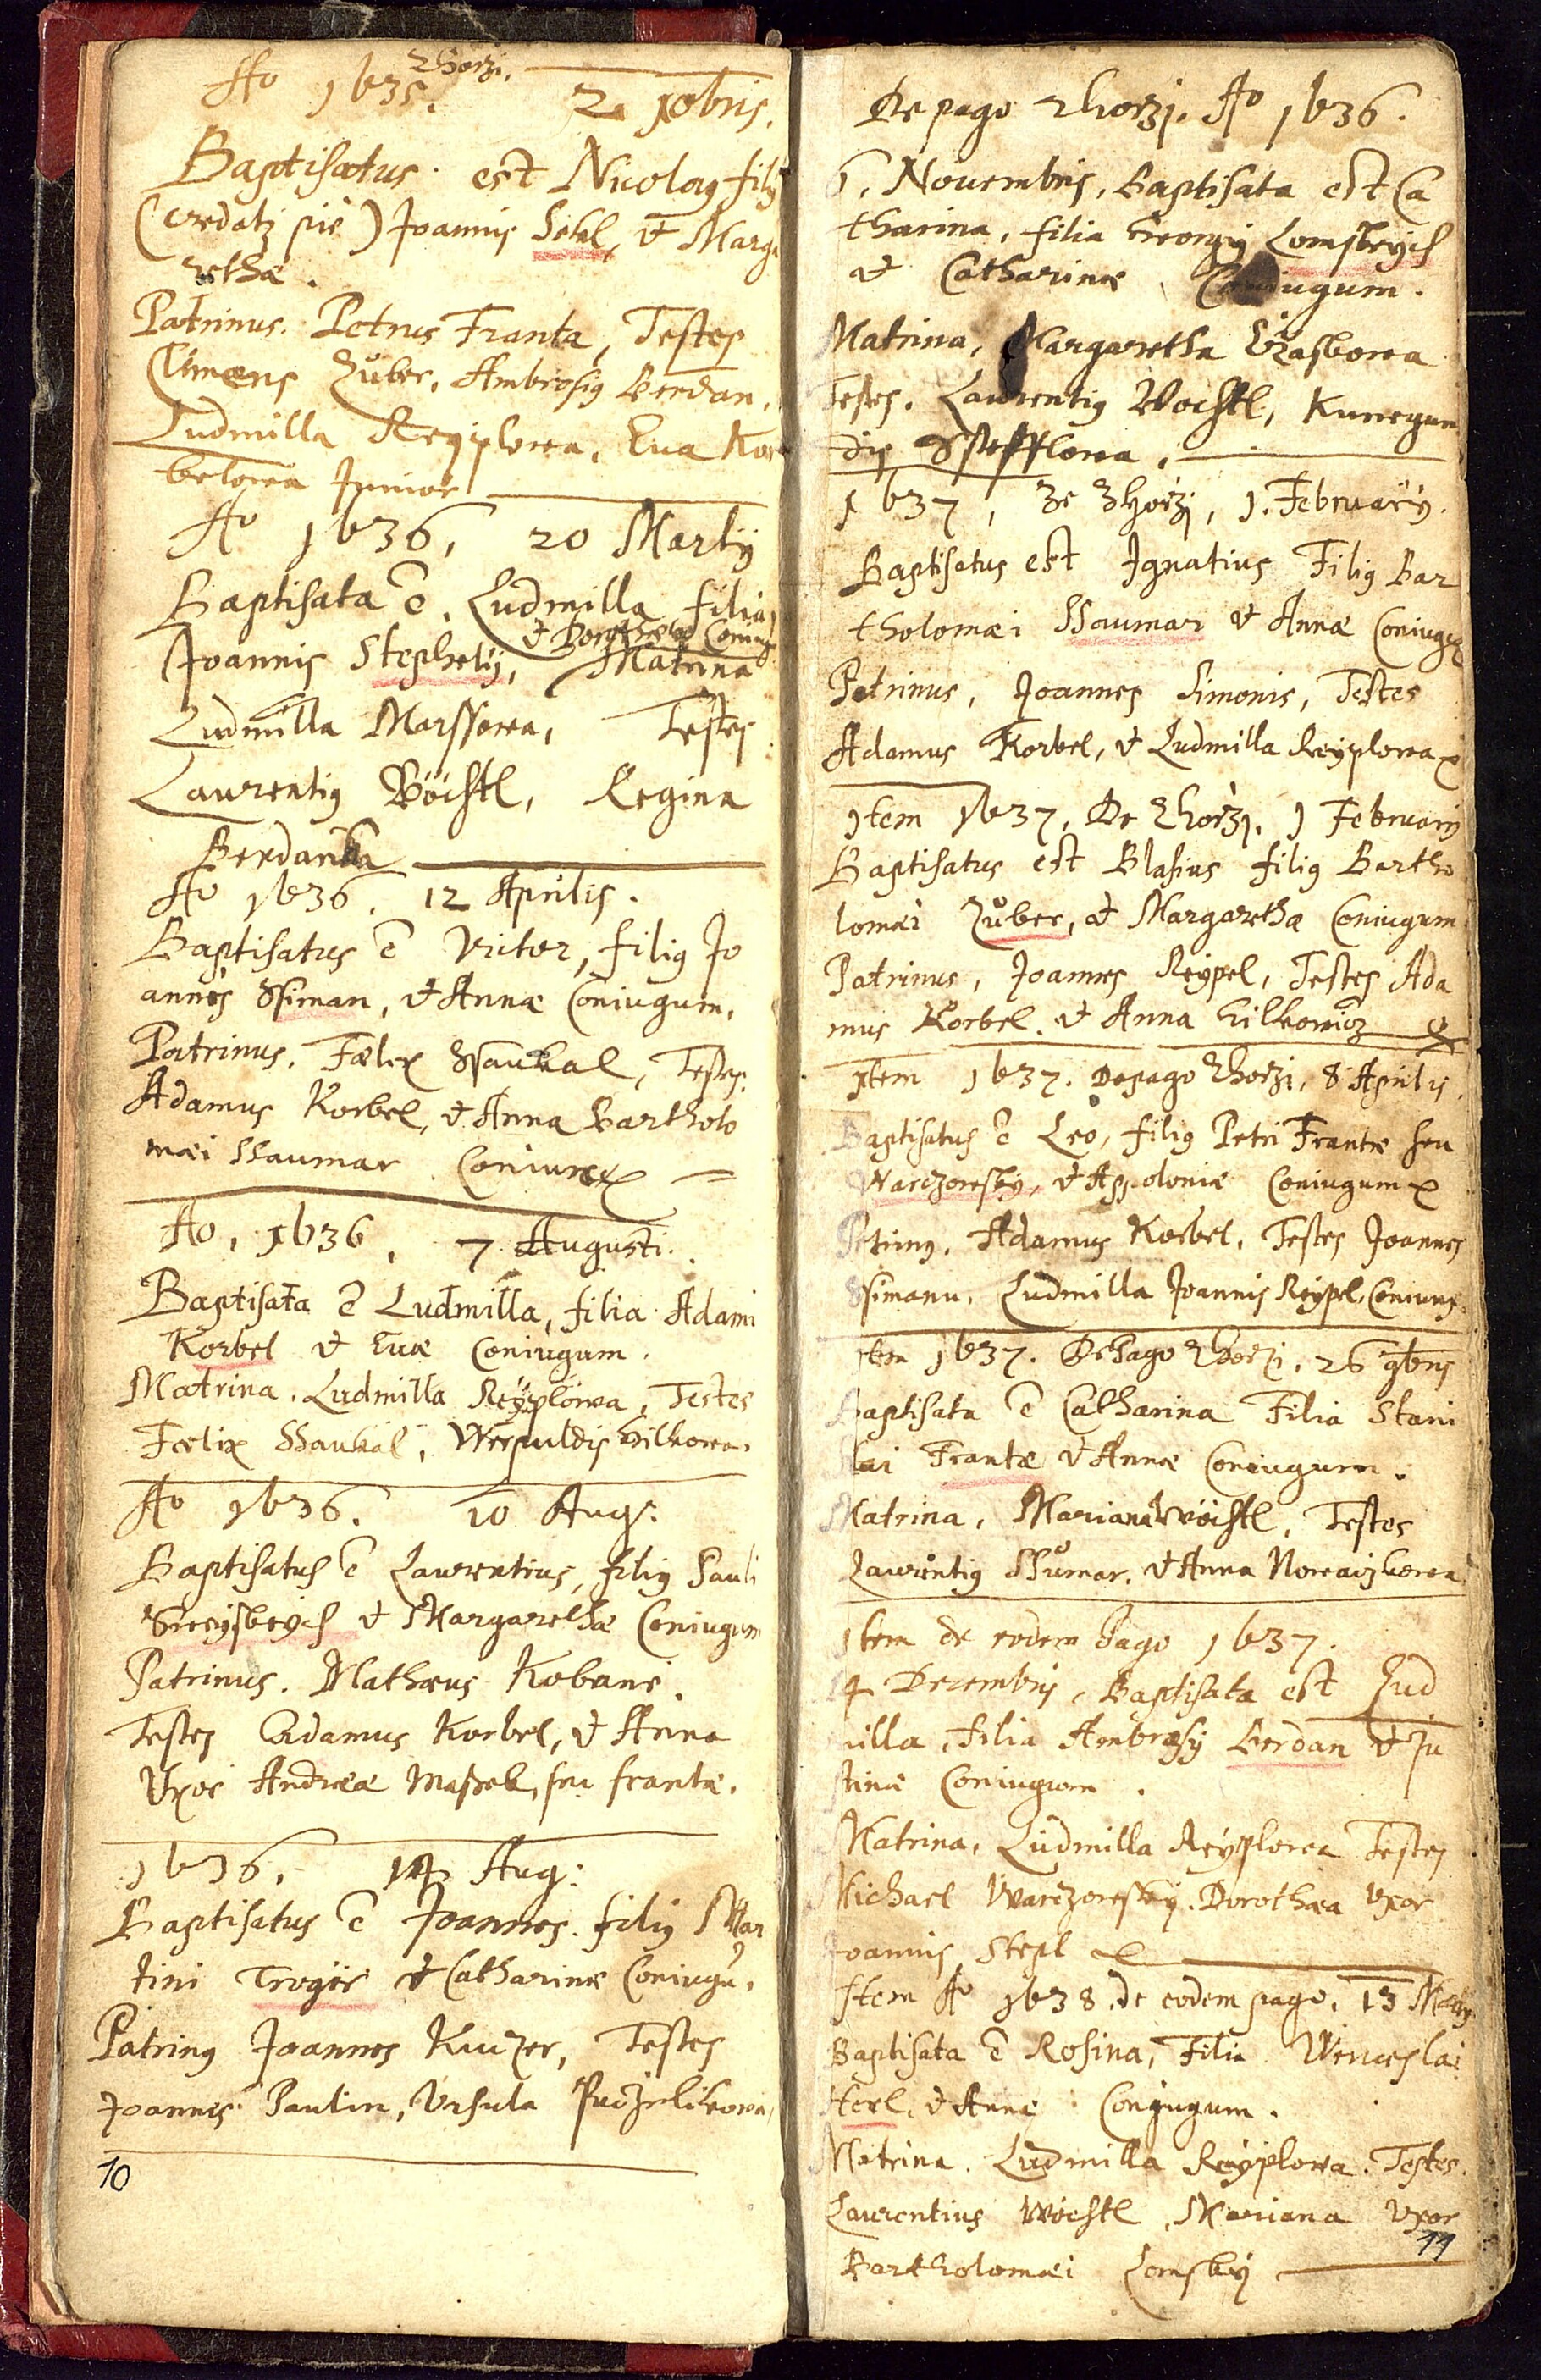 Zhorzi.
Ao 1635. 2. 10bris.
Baptisatus est Nicolaus filius
Joannis Sekl, et Marga
rethæ.
Patrinus. Petrus Franta, Testes
Clemens Zuber, Ambrosius Berdan,
Ludmilla Reyplowa, Eua Kor
belowa Junior
Ao 1636, 20 Martij
Baptisata ē Ludmilla filia
et Dorotheæ Coniug
Joannis Stephelij, Matrina
Ludmilla Marssowa, Testes
Laurentius Wöistl, Regina
Berdanka
Ao 1636. 12 Aprilis.
Baptisatus ē Victor, filius Jo
annes Ssiman, et Annæ Coniugum.
Patrinus. Fælix Ssaukal, Testes.
Adamus Korbel, et Anna Bartholo
mæi Ssaumar Coniunx
Ao. 1636. 7 Augusti.
Baptisata ē Ludmilla, filia Adami
Korbel et Euæ Coniugum.
Matrina. Ludmilla Reyplowa, Testes
Fœlix Ssaukal,
Ao 1636. 10 Aug:
Baptisatus ē Laurentius, filius Pauli
et Margarethæ Coniugum
Patrinus. Mathæus Kobani.
Testes Adamus Korbel, et Anna
Uxor Andreæ seu frantæ.
1636. 14 Aug:
Baptisatus ē Joannes. filius Mar
tini Trogir et Catharinæ Coniugū.
Patrinus Joannes Kuczer, Testes
Joannes Paulin, Ursula
10
De pago Zhorzi. Ao 1636.
6. Nouembris, Baptisata est Ca
tharina, filia Georgij Lomskych
et Catharinæ Coniugum.
Matrina, Margaretha
Testes. Laurentius Woistl, Kunegun
dis Ssteffflowa.
1637, Ze Zhorzi, 1. February.
Baptisatus est Ignatius Filius Bar
tholomæi Ssaumar et Annæ Coniugum
Patrinus, Joannes Simonis, Testes
Adamus Korbel, et Ludmilla Reyplowa
Item 1637. De Zhorzi. 1 February
Baptisatus est Blasius filius Bartho
lomæi Zuber, et Margarethæ Coniugum
Patrinus, Joannes Reypel, Testes Ada
mus Korbel. et Anna
Item 1637. De pago Zhorzi, 8 Aprilis.
Baptisatus ē Leo, filius Petri Frantæ seu
Warczowsky, et Appoloniæ Coniugum
Patrinus. Adamus Korbel, Testes Joannes
Ssimanu, Ludmilla Joannis Reypl. Coniunx.
Item 1637. De Pago Zhorzi. 26 9bris
Baptisata ē Catharina Filia Stani
slai Frantæ et Annæ Coniugum.
Matrina, Mariana Wöistl, Testes
Laurentius Ssumar, et Anna
Item de eodem Pago 1637.
4 Decembris, Baptisata est Lud
milla, filia Ambrosy Berdan et Ju
stinæ Coniugum.
Matrina, Ludmilla Reyplowa Testes
Michael Warczowsky. Dorothæa Uxor
Joannis Stepl
Item Ao 1638. de eodem pago. 13 Martij
Baptisata ē Rosina, Filia Wenceslai
Herl, et Annæ Conjugum.
Matrina. Ludmilla Reyplowa. Testes.
Laurentius Wöistl, Mariana Uxor
11
Bartholomæi Lomsky